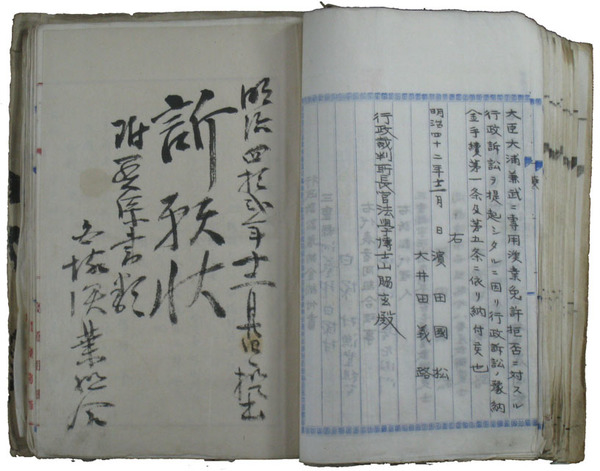 大臣大浦兼武ニ專用漁業免許拒否ニ対スル
行政訴訟ヲ提起シタルニ因リ行政訴訟ノ豫納
金手續第一条及第五条ニ依リ納付候也
右
明治四十二年十二月 日 濱田國松
大井田義路
行政裁判所長官法學博士山脇玄殿
明治四拾弐年十二月 日提出
訴願状
附 係書類
白塚漁業組合